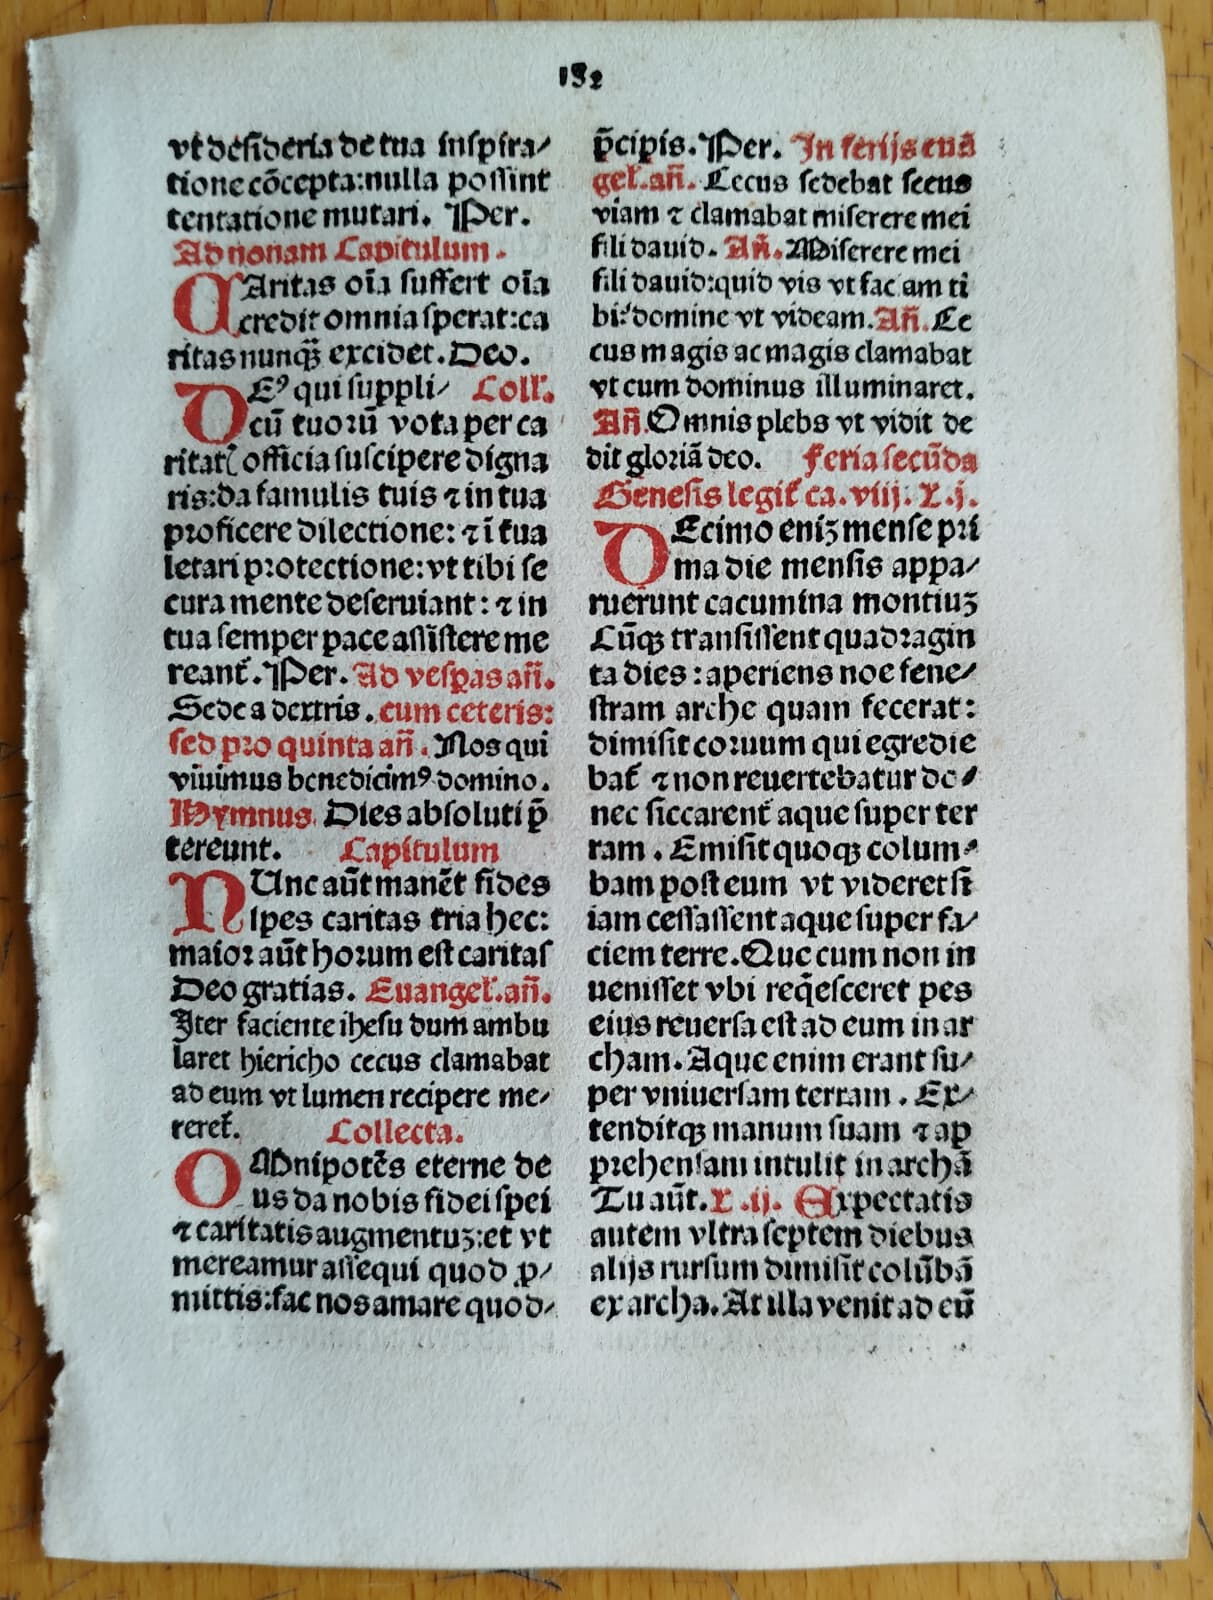 132
vt desideria de tua inspira/
tione cōcepta:nulla possint
tentatione mutari. Per.
Ad nonam Capitulum.
CAritas oīa suffert oīa
credit omnia sperat:ca
ritas nunqȝ̄ excidet. Deo.
DEꝰ qui suppli/ Coll̓.
cū tuoꝛū vota per ca
ritatꝭ officia suscipere digna
ris:da famulis tuis ⁊ in tua
pꝛoficere dilectione: ⁊ ī tua
letari pꝛotectione:vt tibi se
cura mente deseruiant: ⁊ in
tua semper pace assistere me
reant᷑. Per. Ad vesꝑas añ.
Sede a dextris. cum ceteris:
sed pꝛo quinta añ. Nos qui
viuimus benedicimꝰ domino.
Hymnus. Dies absoluti p̄
tereunt. Capitulum
NUnc aūt manēt fides
spes caritas tria hec:
maioꝛ aūt hoꝛum est caritas
Deo gratias. Euangel̓.añ.
Iter faciente ihesu dum ambu
laret hiericho cecus clamabat
ad eum vt lumen recipere me/
reret᷑. Collecta.
OMnipotēs eterne de
us da nobis fidei spei
⁊ caritatis augmentuȝ:et vt
mereamur assequi quod ꝓ/
mittis:fac nos amare quod/
p̄cipis. Per. In ferijs euā
gel̓.añ. Cecus sedebat secus
viam ⁊ clamabat miserere mei
fili dauid. Añ. Miserere mei
fili dauid:quid vis vt faciam ti
bi:domine vt videam. Añ. Ce
cus magis ac magis clamabat
vt cum dominus illuminaret.
Añ. Omnis plebs vt vidit de
dit gloꝛiā deo. Feria secūda
Genesis legit᷑ ca. viij. R.j.
DEcimo eniȝ mense pri
ma die mensis appa/
ruerunt cacumina montiuȝ
Cūqȝ transissent quadꝛagin
ta dies:aperiens noe fene/
stram arche quam fecerat:
dimisit coꝛuum qui egredie
bat᷑ ⁊ non reuertebatur do/
nec siccarent᷑ aque super ter
ram. Emisit quoqȝ colum/
bam post eum vt videret si
iam cessassent aque super fa/
ciem terre. Que cum non in
uenisset vbi req̄esceret pes
eius reuersa est ad eum in ar
cham. Aque enim erant su/
per vniuersam terram. Ex/
tenditqȝ manum suam ⁊ ap
pꝛehensam intulit in archā
Tu aūt. R.ij. Expectatis
autem vltra septem diebus
alijs rursum dimisit colūbā
ex archa. At illa venit ad eū